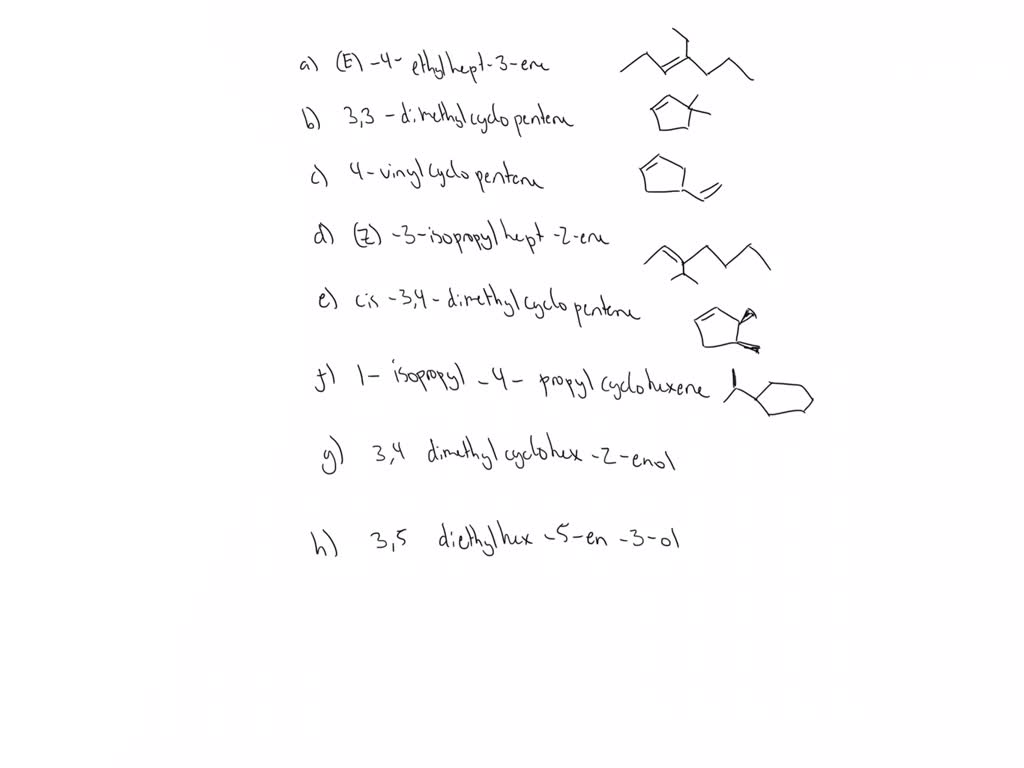 a) (E) -4- ethylhept-3-ene
b) 3,3 -dimethylcyclopentene
c) 4-vinylcyclopentene
d) (Z) -3-isopropylhept -2-ene
e) cis -3,4-dimethylcyclopentene
f) 1- isopropyl -4- propylcyclohexene
g) 3,4 dimethylcyclohex -2-enol
h) 3,5 diethylhex -5-en -3-ol